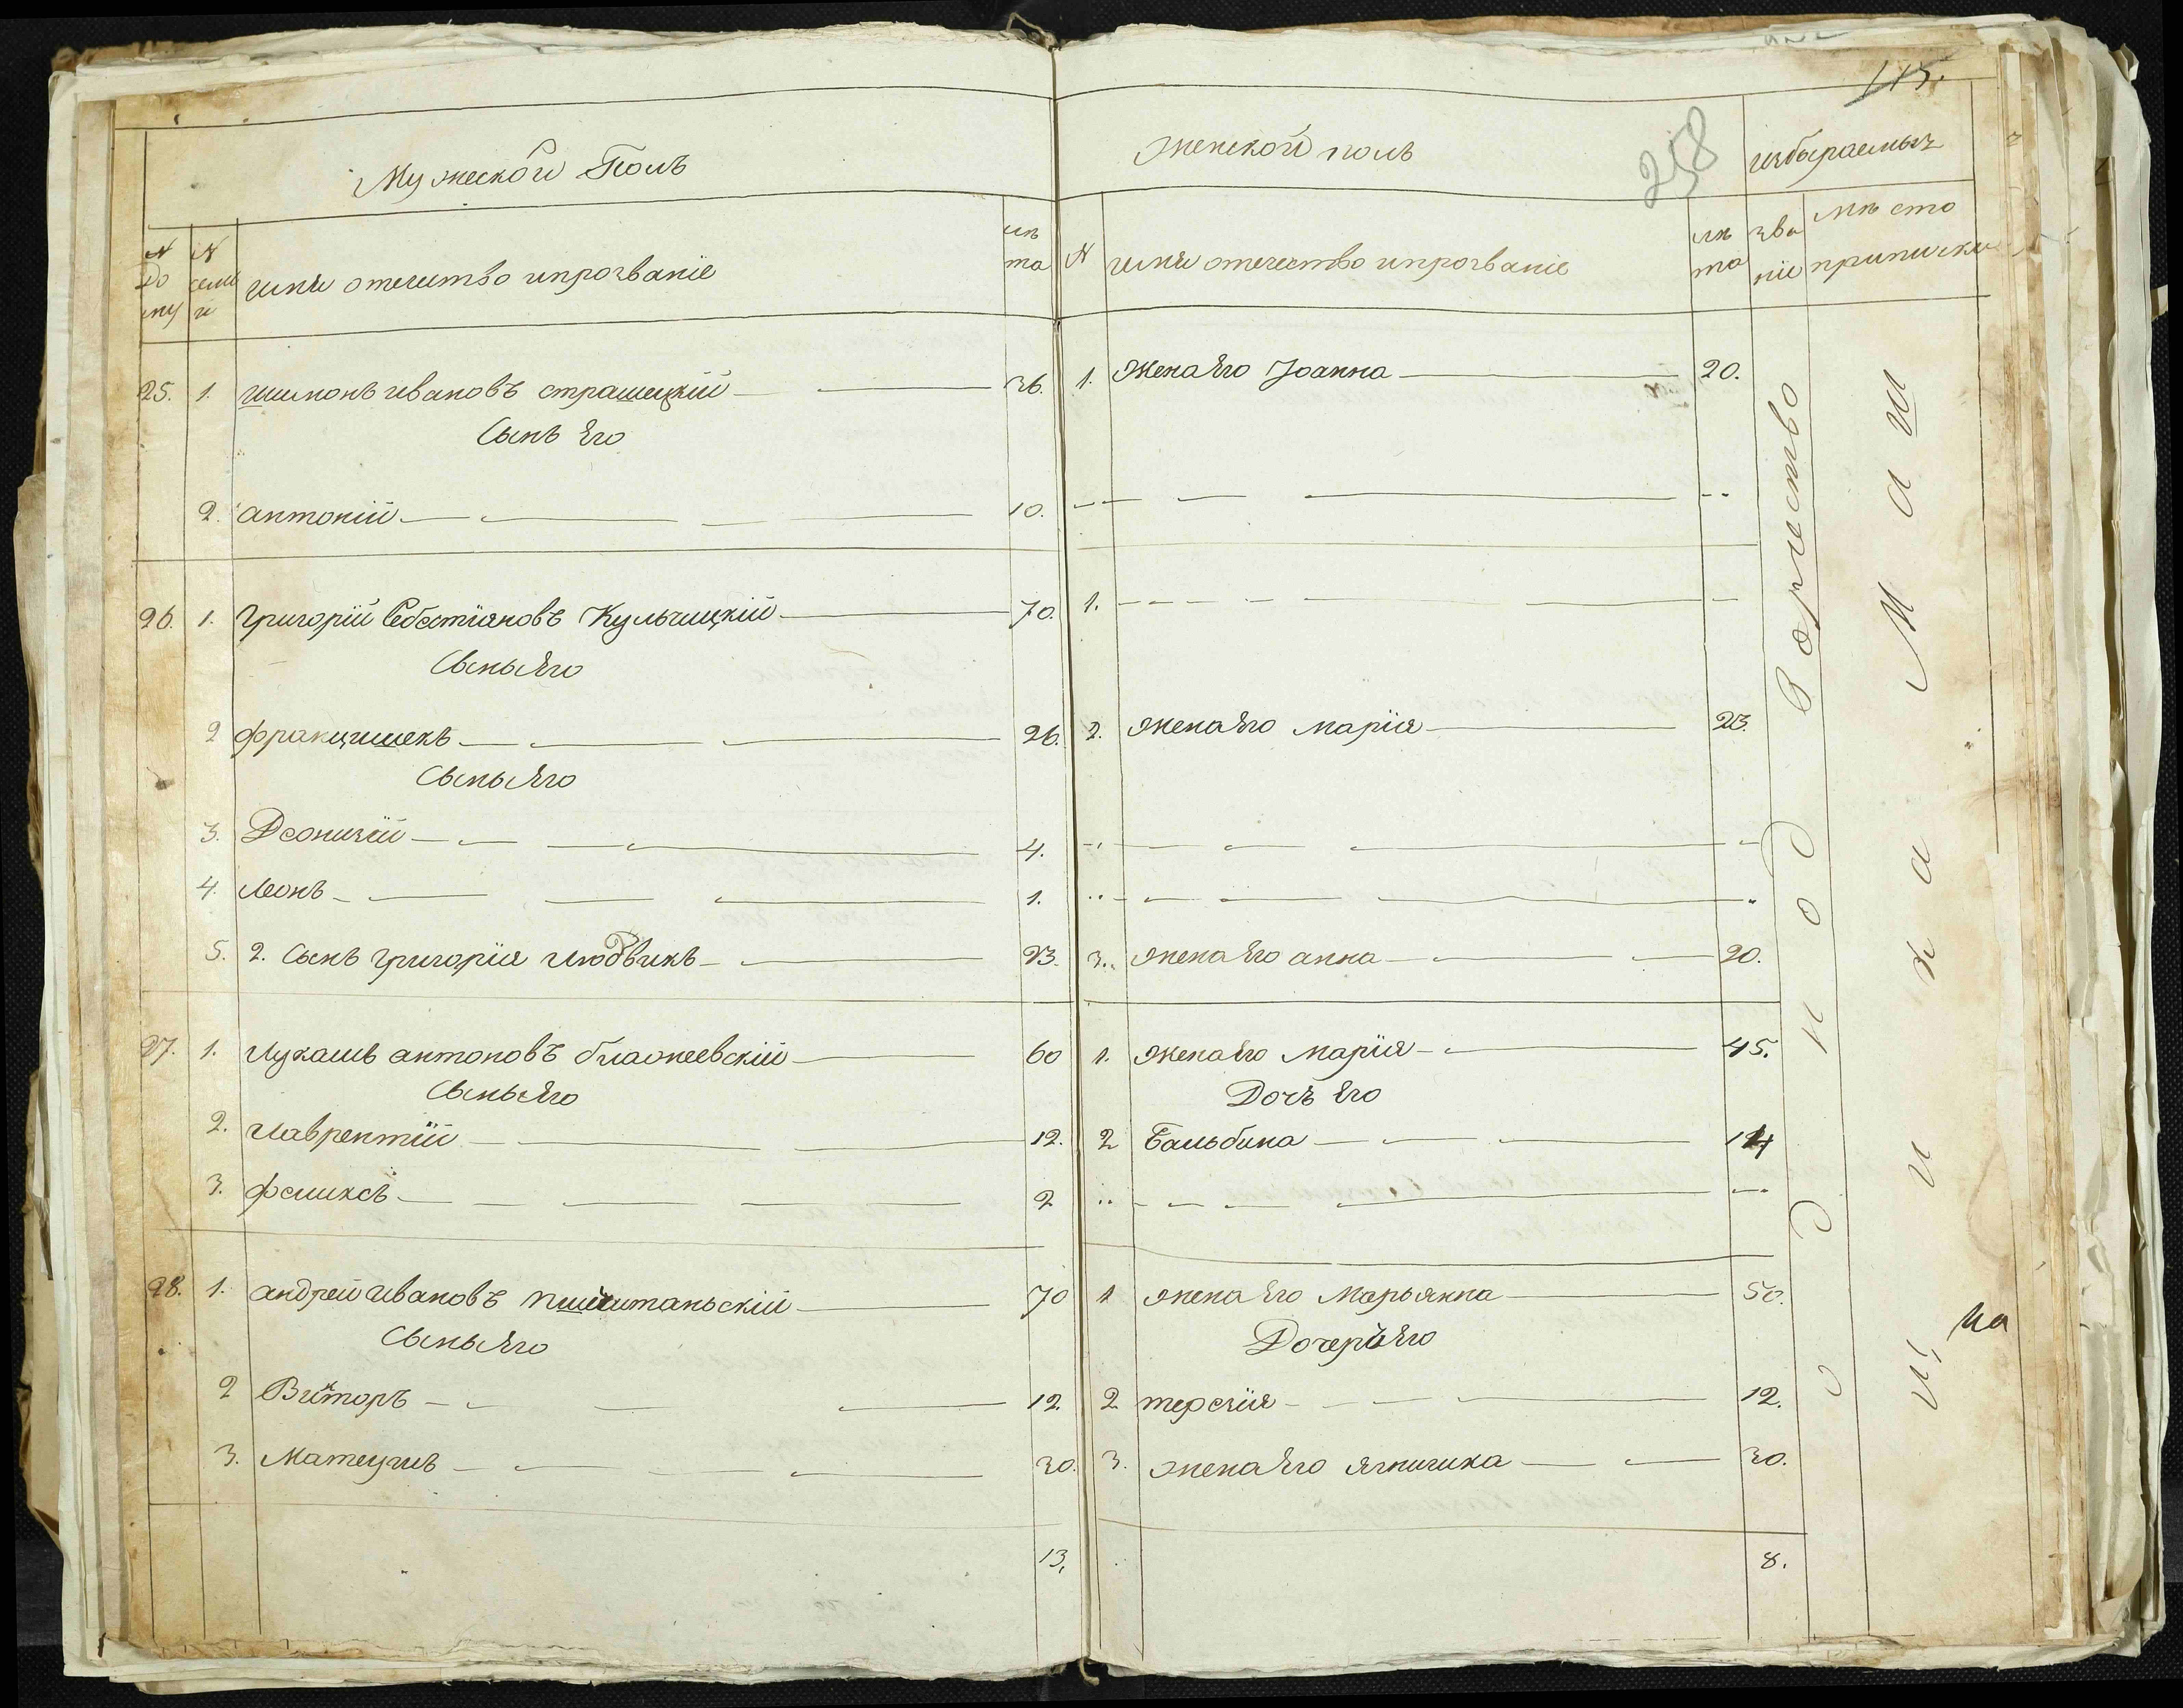 115.
258
Мужеской Полъ
Женской полъ
избыраемыхъ
N до му
N семи и
имя отечество ипрозваніе
лѣ та
N
имя отечество ипрозваніе
лѣ та
зва ніе
мѣсто приписки
25. 1. шимонъ ивановъ страшецкій 36. 1. Жена Его Іоанна 20.
Сынъ Его
2. антоній 10.
26. 1. григорій Себестіяновъ Кульчицкій 70. 1.
Сынъ Его
2 францишекъ 26. 2. жена Его марія 23.
Сынъ Его
3. Деонизій 4.
4. леонъ 1.
5. 2. Сынъ григорія людвикъ 23. 3. жена Его анна 20.
27. 1. лукашъ антоновъ 60 1. жена Его марія 45.
Сынъ Его Дочь Его
2. лаврентій 12. 2 бальбина 14
3. феликсъ 2
28. 1. андрей ивановъ 70 1 жена Его Марьянна 50.
Сынъ Его Дочери Его
2 Викторъ 12. 2 терезія 12.
3. Матеушъ 30. 3. жена Его ягнишка 30.
13. 8.